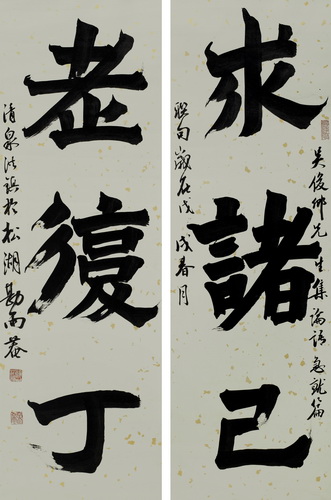 求諸己
吳俊卿先生集論語急就篇
聯句歲在戊戌春月
老復丁
清泉 於松湖 雨菴